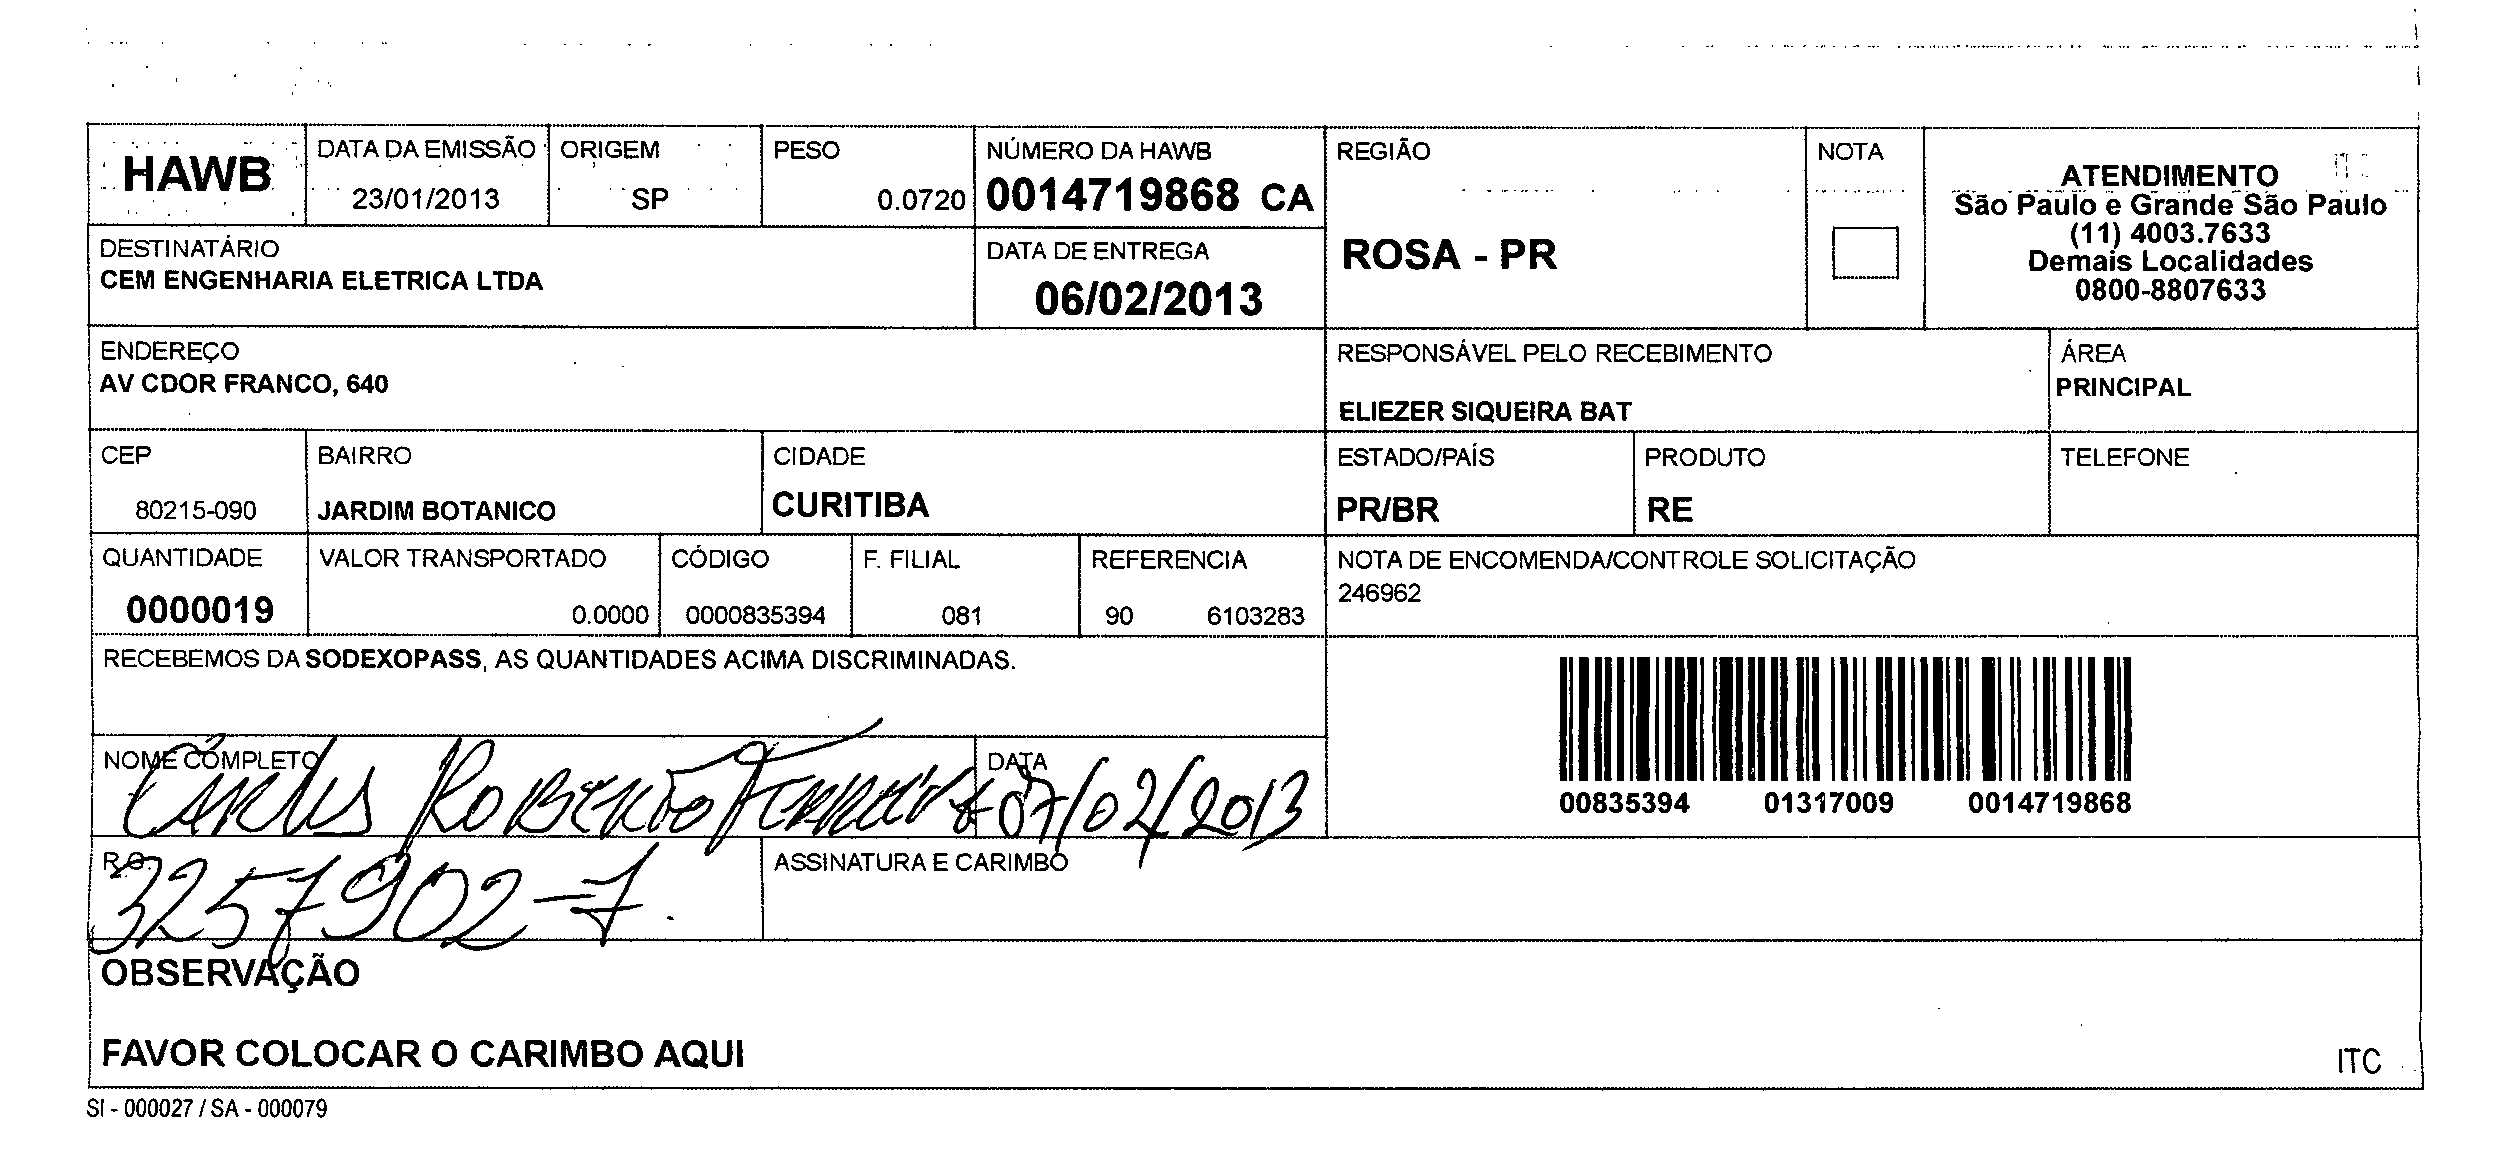 HAWB
DATA DA EMISSÃO
23/01/2013
ORIGEM
SP
PESO
0.0720
NÚMERO DA HAWB
0014719868 CA
REGIÃO
ROSA - PR
NOTA
ATENDIMENTO
São Paulo e Grande São Paulo
(11) 4003.7633
Demais Localidades
0800-8807633
DESTINATÁRIO
CEM ENGENHARIA ELETRICA LTDA
DATA DE ENTREGA
06/02/2013
ENDEREÇO
AV CDOR FRANCO, 640
RESPONSÁVEL PELO RECEBIMENTO
ELIEZER SIQUEIRA BAT
ÁREA
PRINCIPAL
CEP
80215-090
BAIRRO
JARDIM BOTANICO
CIDADE
CURITIBA
ESTADO/PAÍS
PR/BR
PRODUTO
RE
TELEFONE
QUANTIDADE
0000019
VALOR TRANSPORTADO
0.0000
CÓDIGO
0000835394
F. FILIAL
081
REFERENCIA
90 6103283
NOTA DE ENCOMENDA/CONTROLE SOLICITAÇÃO
246962
RECEBEMOS DA SODEXOPASS, AS QUANTIDADES ACIMA DISCRIMINADAS.
00835394 01317009 0014719868
NOME COMPLETO
Carlos Roberto Ferreira
DATA
07/02/2013
R.G.
3257902-7.
ASSINATURA E CARIMBO
OBSERVAÇÃO
FAVOR COLOCAR O CARIMBO AQUI
ITC
SI - 000027 / SA - 000079